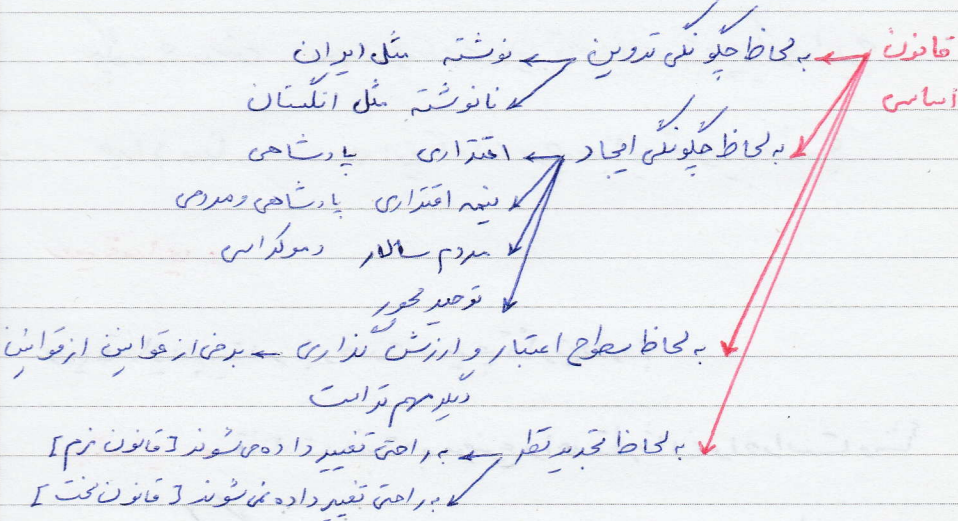 قانون به لحاظ چگونگی تدوین نوشته مثل ایران
اساسی نانوشته مثل انگلستان
به لحاظ چگونگی ایجاد اقتداری پادشاهی
نیمه اقتداری پادشاهی و مردمی
مردم سالار دموکراسی
توحید محور
به لحاظ سطوح اعتبار و ارزش گذاری برخی از قوانین از قوانین
دیگر مهم تر است
به لحاظ تجدید نظر به راحتی تغییر داده می شوند [قانون نرم]
به راحتی تغییر داده نمی شوند [قانون سخت]